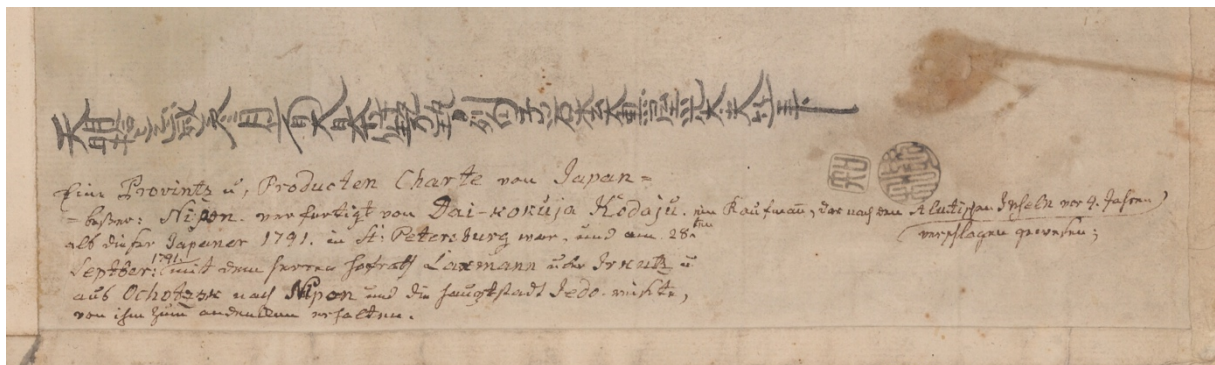 天明 歳六月 大日本 大夫
Eine Provintz u, Producten Charte von Japan =
= beßer: Nipon. verfertigt von Dai-kokuja Kodaju. ein Kaufmann, der nach den Aleutischen Inseln vor 9. Jahren
verschlagen gewesen;
als dieser Japaner 1791. in St: Petersburg war. und am 28ten
Septber: 1791. mit dem Herren Hofrath Laxmann über Irkutz u
aus Ochotzok nach Nipon und die Hauptstadt Jedo. reiste,
von ihm zum andenken erhalten.